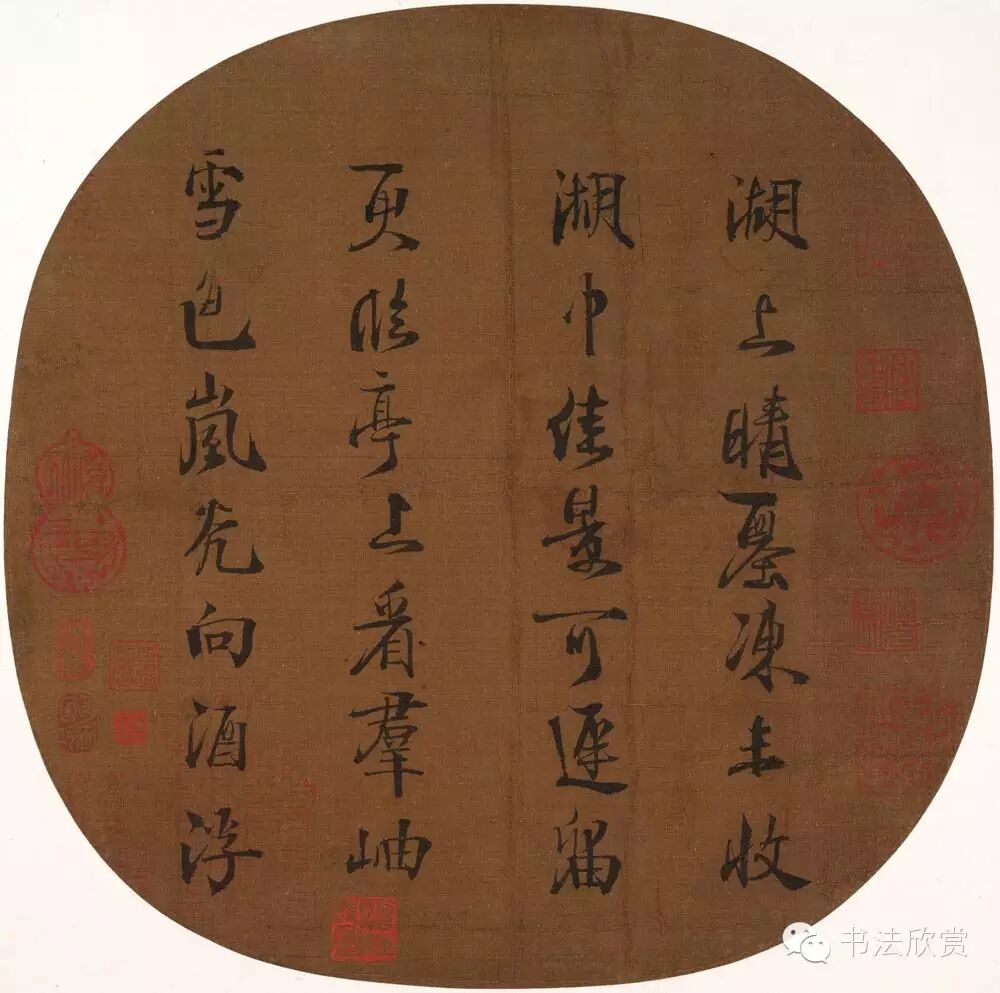 湖上晴凍未收
湖中佳景可遲留
更臨亭上看羣岫
雪色嵐光向酒浮
书法欣赏